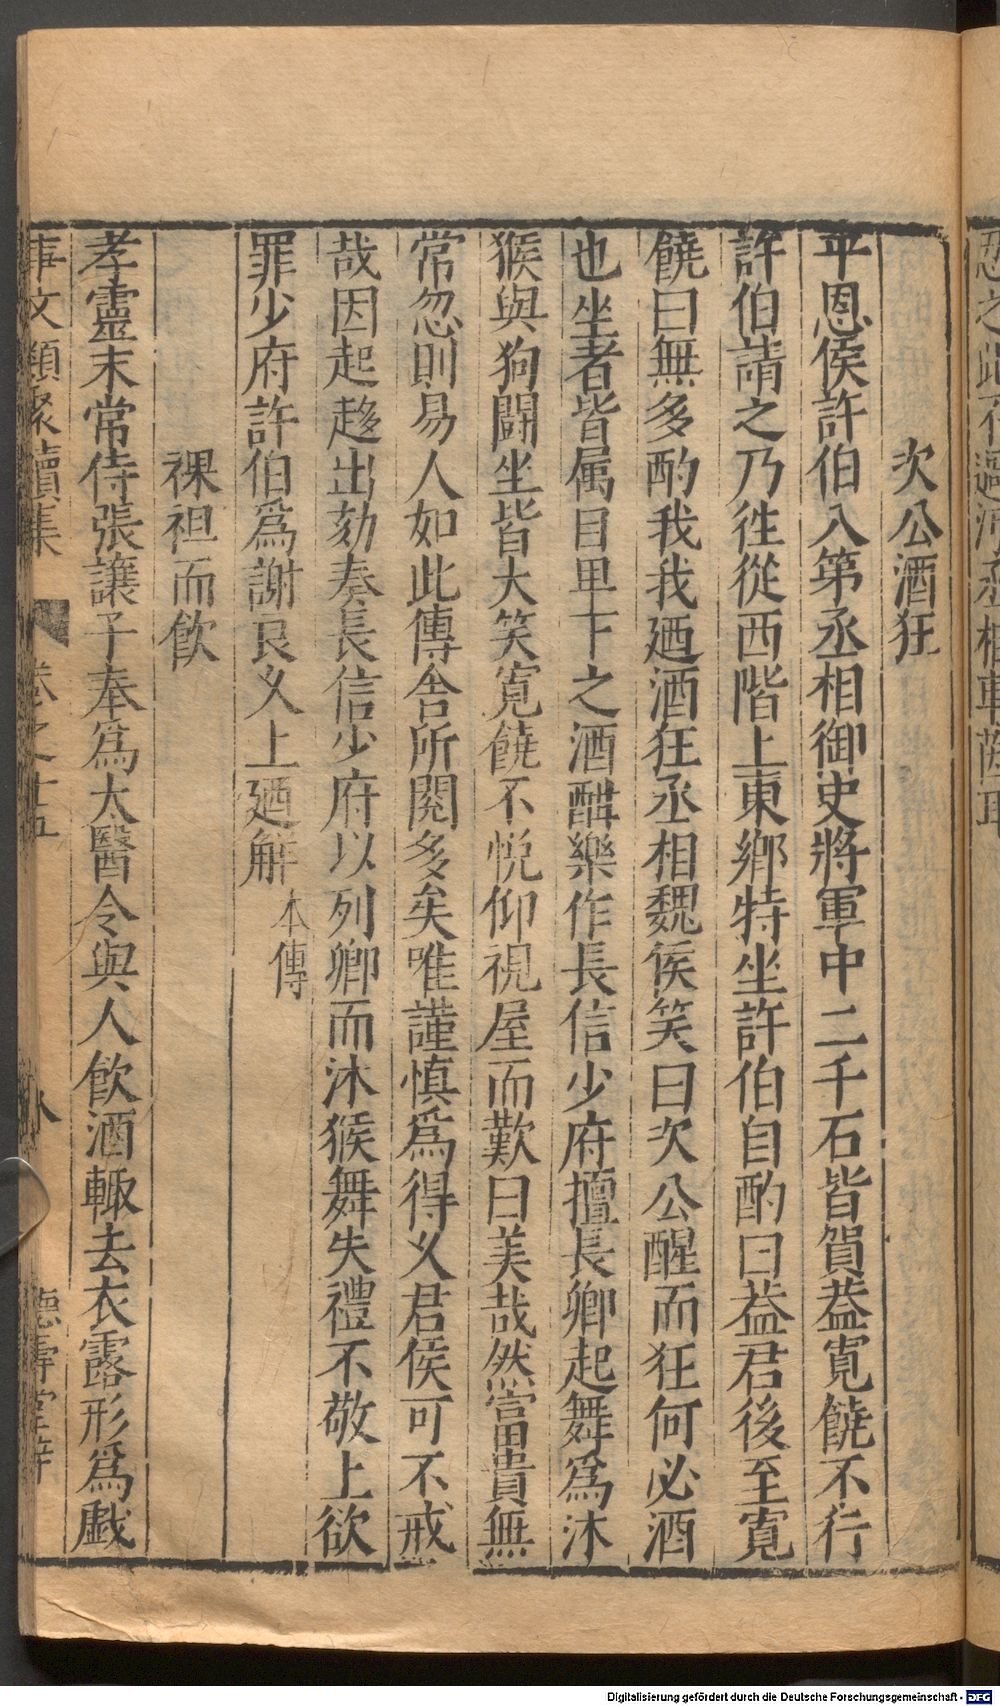 次公酒狂
平恩侯許伯入第丞相御史將軍中二千石皆賀葢寛饒不行
許伯請之乃徃從西階上東鄉特坐許伯自酌曰葢君後至寛
饒曰無多酌我我廼酒狂丞相魏侯笑曰次公醒而狂何必酒
也坐者皆属目卑下之酒酣樂作長信少府擅長卿起舞爲沐
猴與狗鬪坐皆大笑寛饒不悅仰視屋而歎曰美哉然富貴無
常忽則易人如此傳舍所閱多矣唯謹慎爲得乂君侯可不戒
哉因起趍出劾奏長信少府以列卿而沐猴舞失禮不敬上欲
罪少府許伯爲謝艮乂上廼解 本傳
裸袒而飲
孝靈末常侍張讓子奉爲太醫令與人飲酒輙去衣露形爲戲
事文類聚續集 卷之十五 德壽堂梓
Digitalisierung gefördert durch die Deutsche Forschungsgemeinschaft - DFG